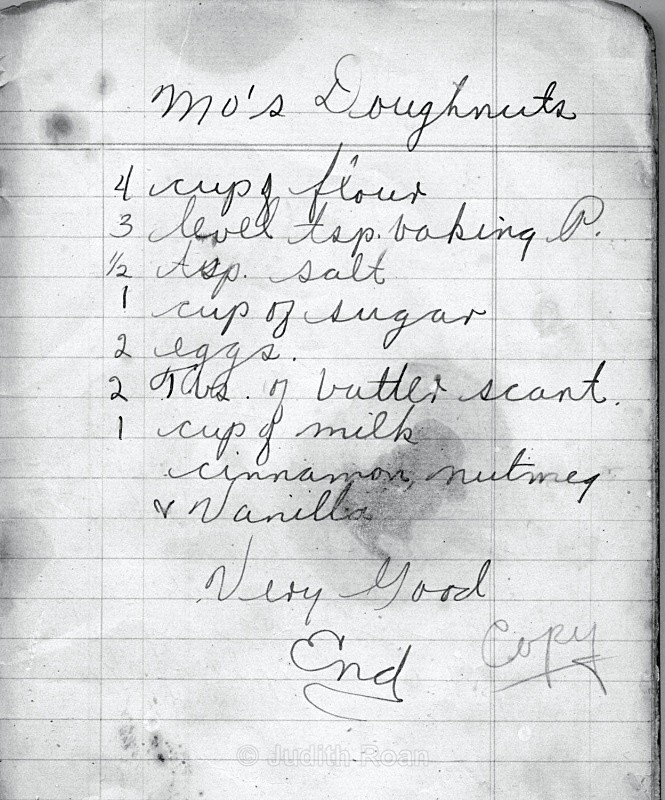 Mo's Doughnuts
4 cup of flour
3 level tsp. baking P.
½ tsp. salt
1 cup of sugar
2 eggs.
2 Tbs. of butter scant.
1 cup of milk
cinnamon, nutmeg
& Vanilla
Very Good
End
Copy
© Judith Roan